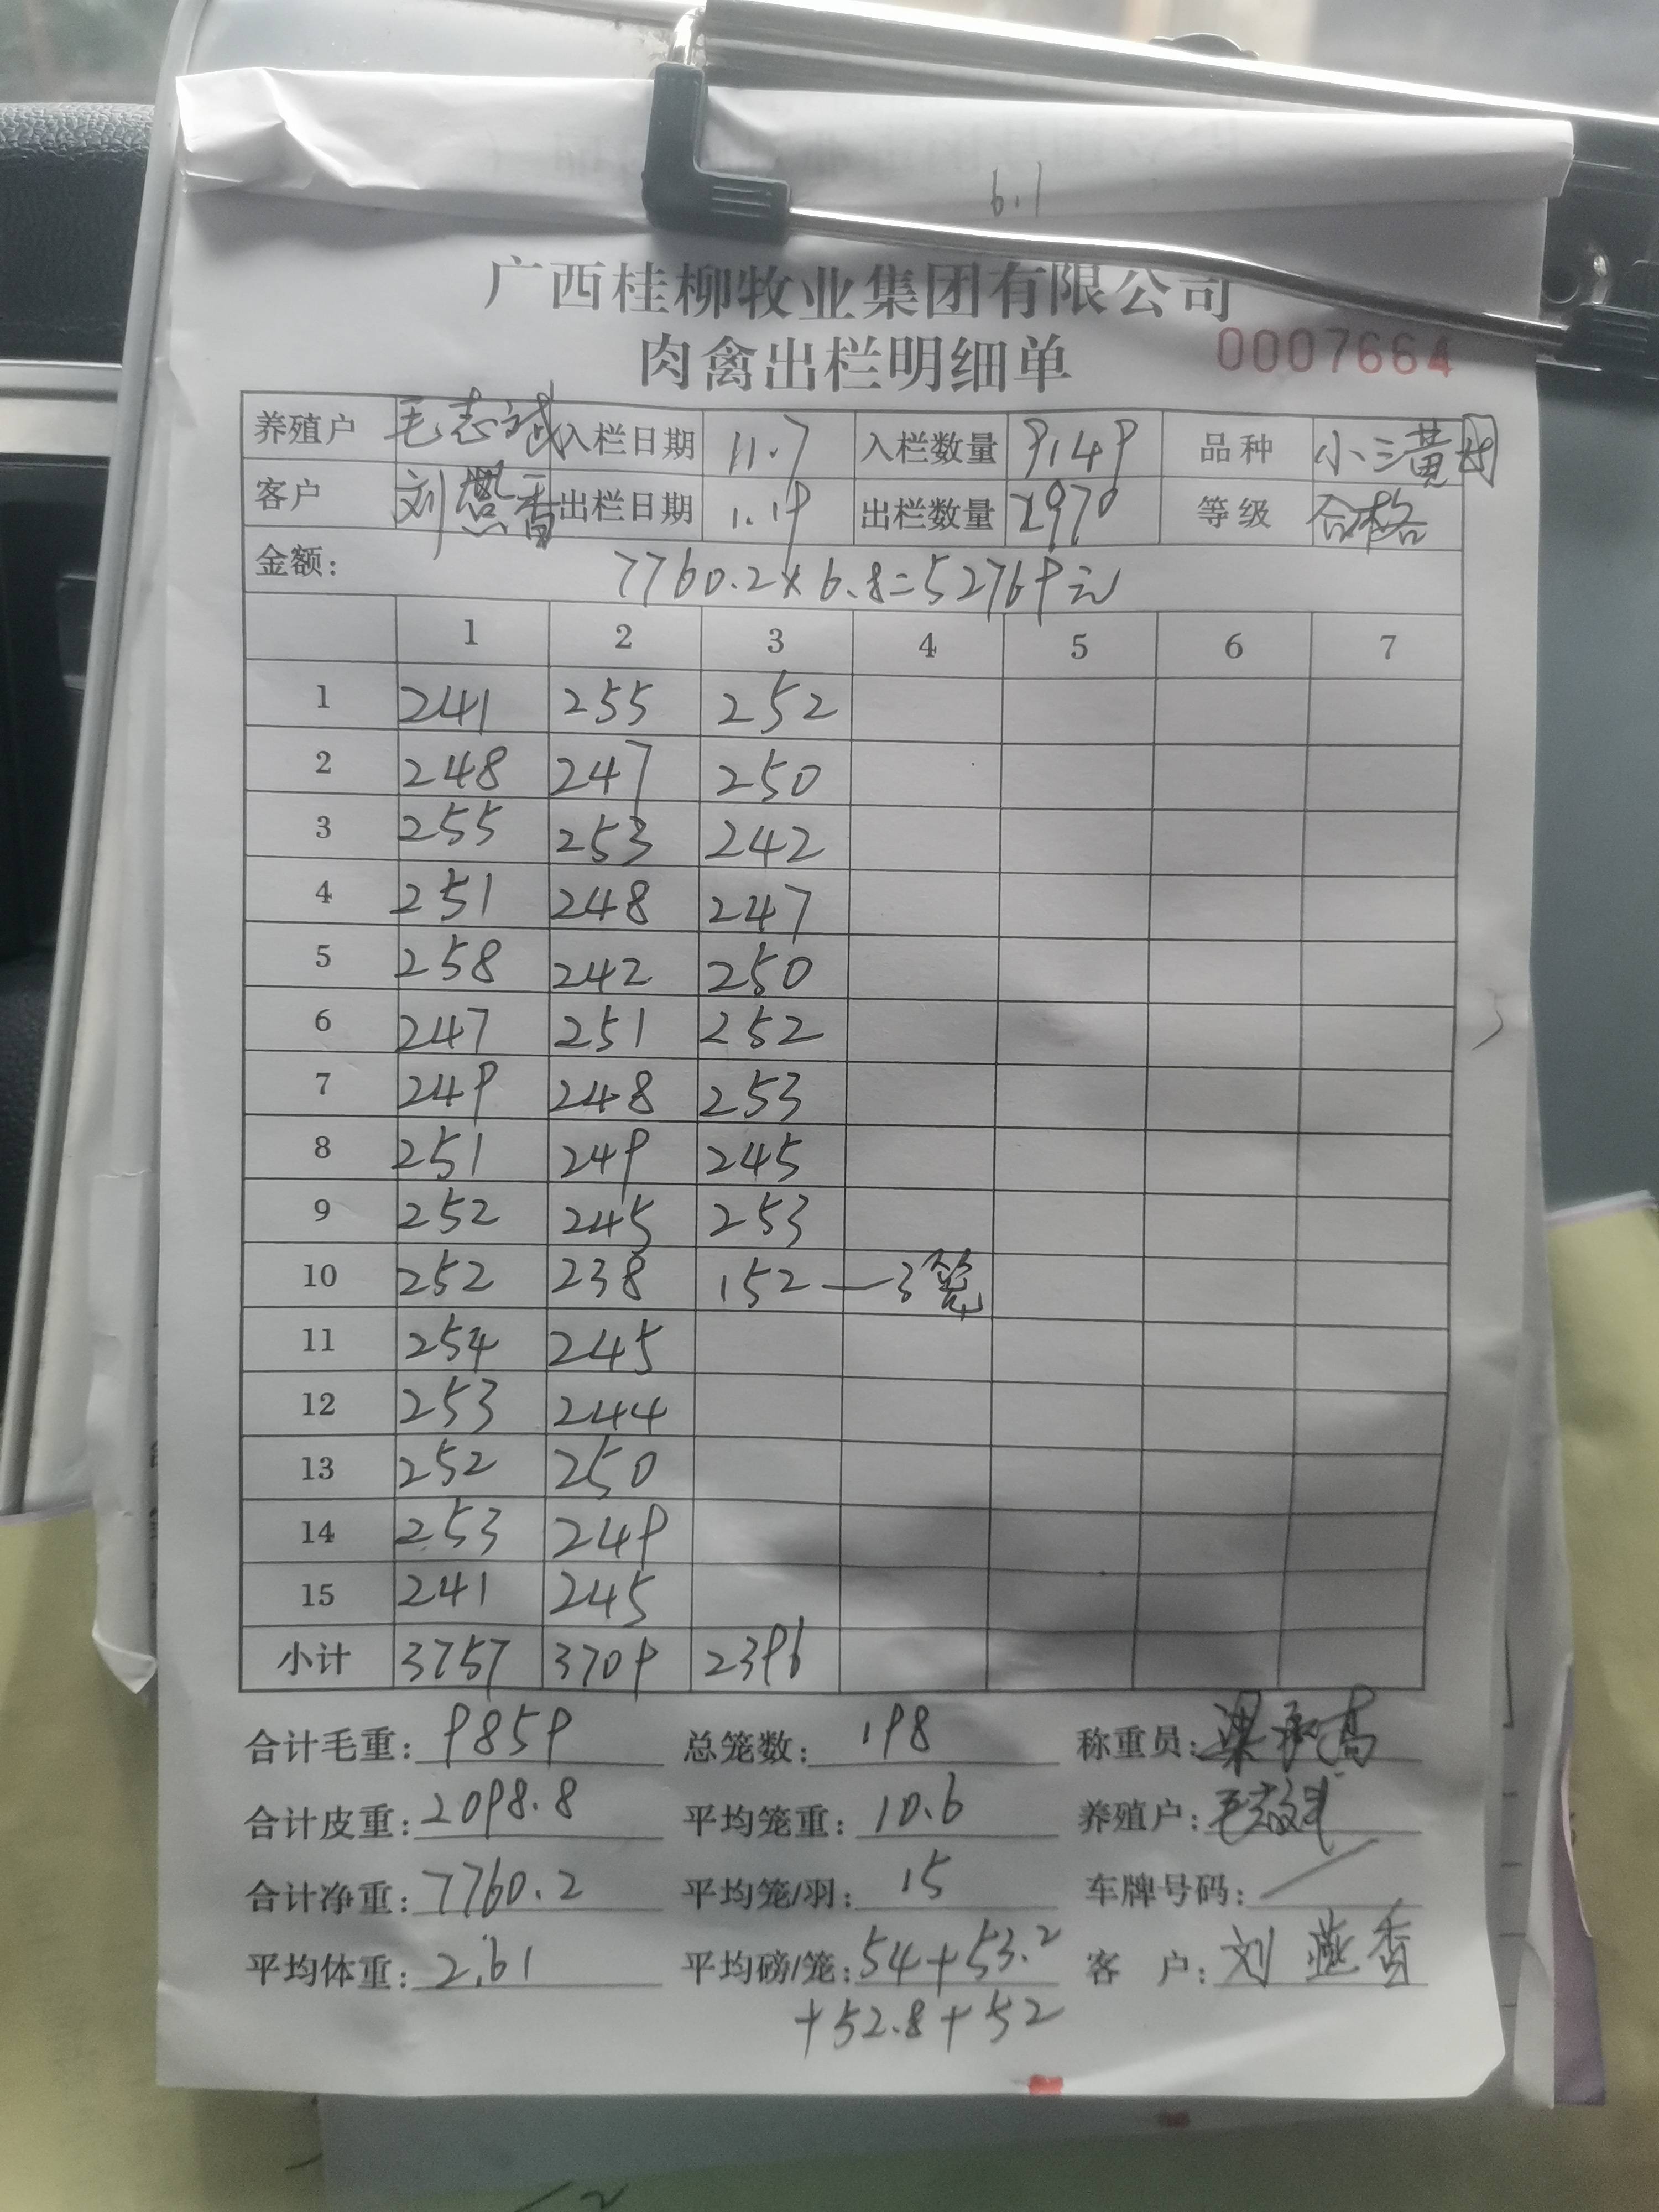 6.1
广西桂柳牧业集团有限公司
肉禽出栏明细单 0007664
养殖户 毛志斌 入栏日期 11.7 入栏数量 9149 品种 小三黄
客户 刘燕香 出栏日期 1.19 出栏数量 2970 等级 合格
金额: 7760.2×6.8=52769元
1 2 3 4 5 6 7
1 241 255 252
2 248 247 250
3 255 253 242
4 251 248 247
5 258 242 250
6 247 251 252
7 249 248 253
8 251 249 245
9 252 245 253
10 252 238 152—3笼
11 254 245
12 253 244
13 252 250
14 253 249
15 241 245
小计 3757 3709 2396
合计毛重: 9859 总笼数: 198 称重员: 梁承高
合计皮重: 2098.8 平均笼重: 10.6 养殖户: 毛志斌
合计净重: 7760.2 平均笼/羽: 15 车牌号码: /
平均体重: 2.61 平均磅/笼: 54+53.2 客户: 刘燕香
+52.8+52